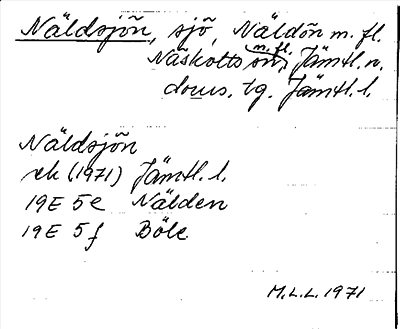 Näldsjön, sjö, Näldön m. fl.
Näskotts sn, m. fl. Jämtl. n.
doms. tg. Jämtl. l.
Näldsjön
ek (1971) Jämtl. l.
19E 5e Nälden
19E 5f Böle
M.L.L. 1971